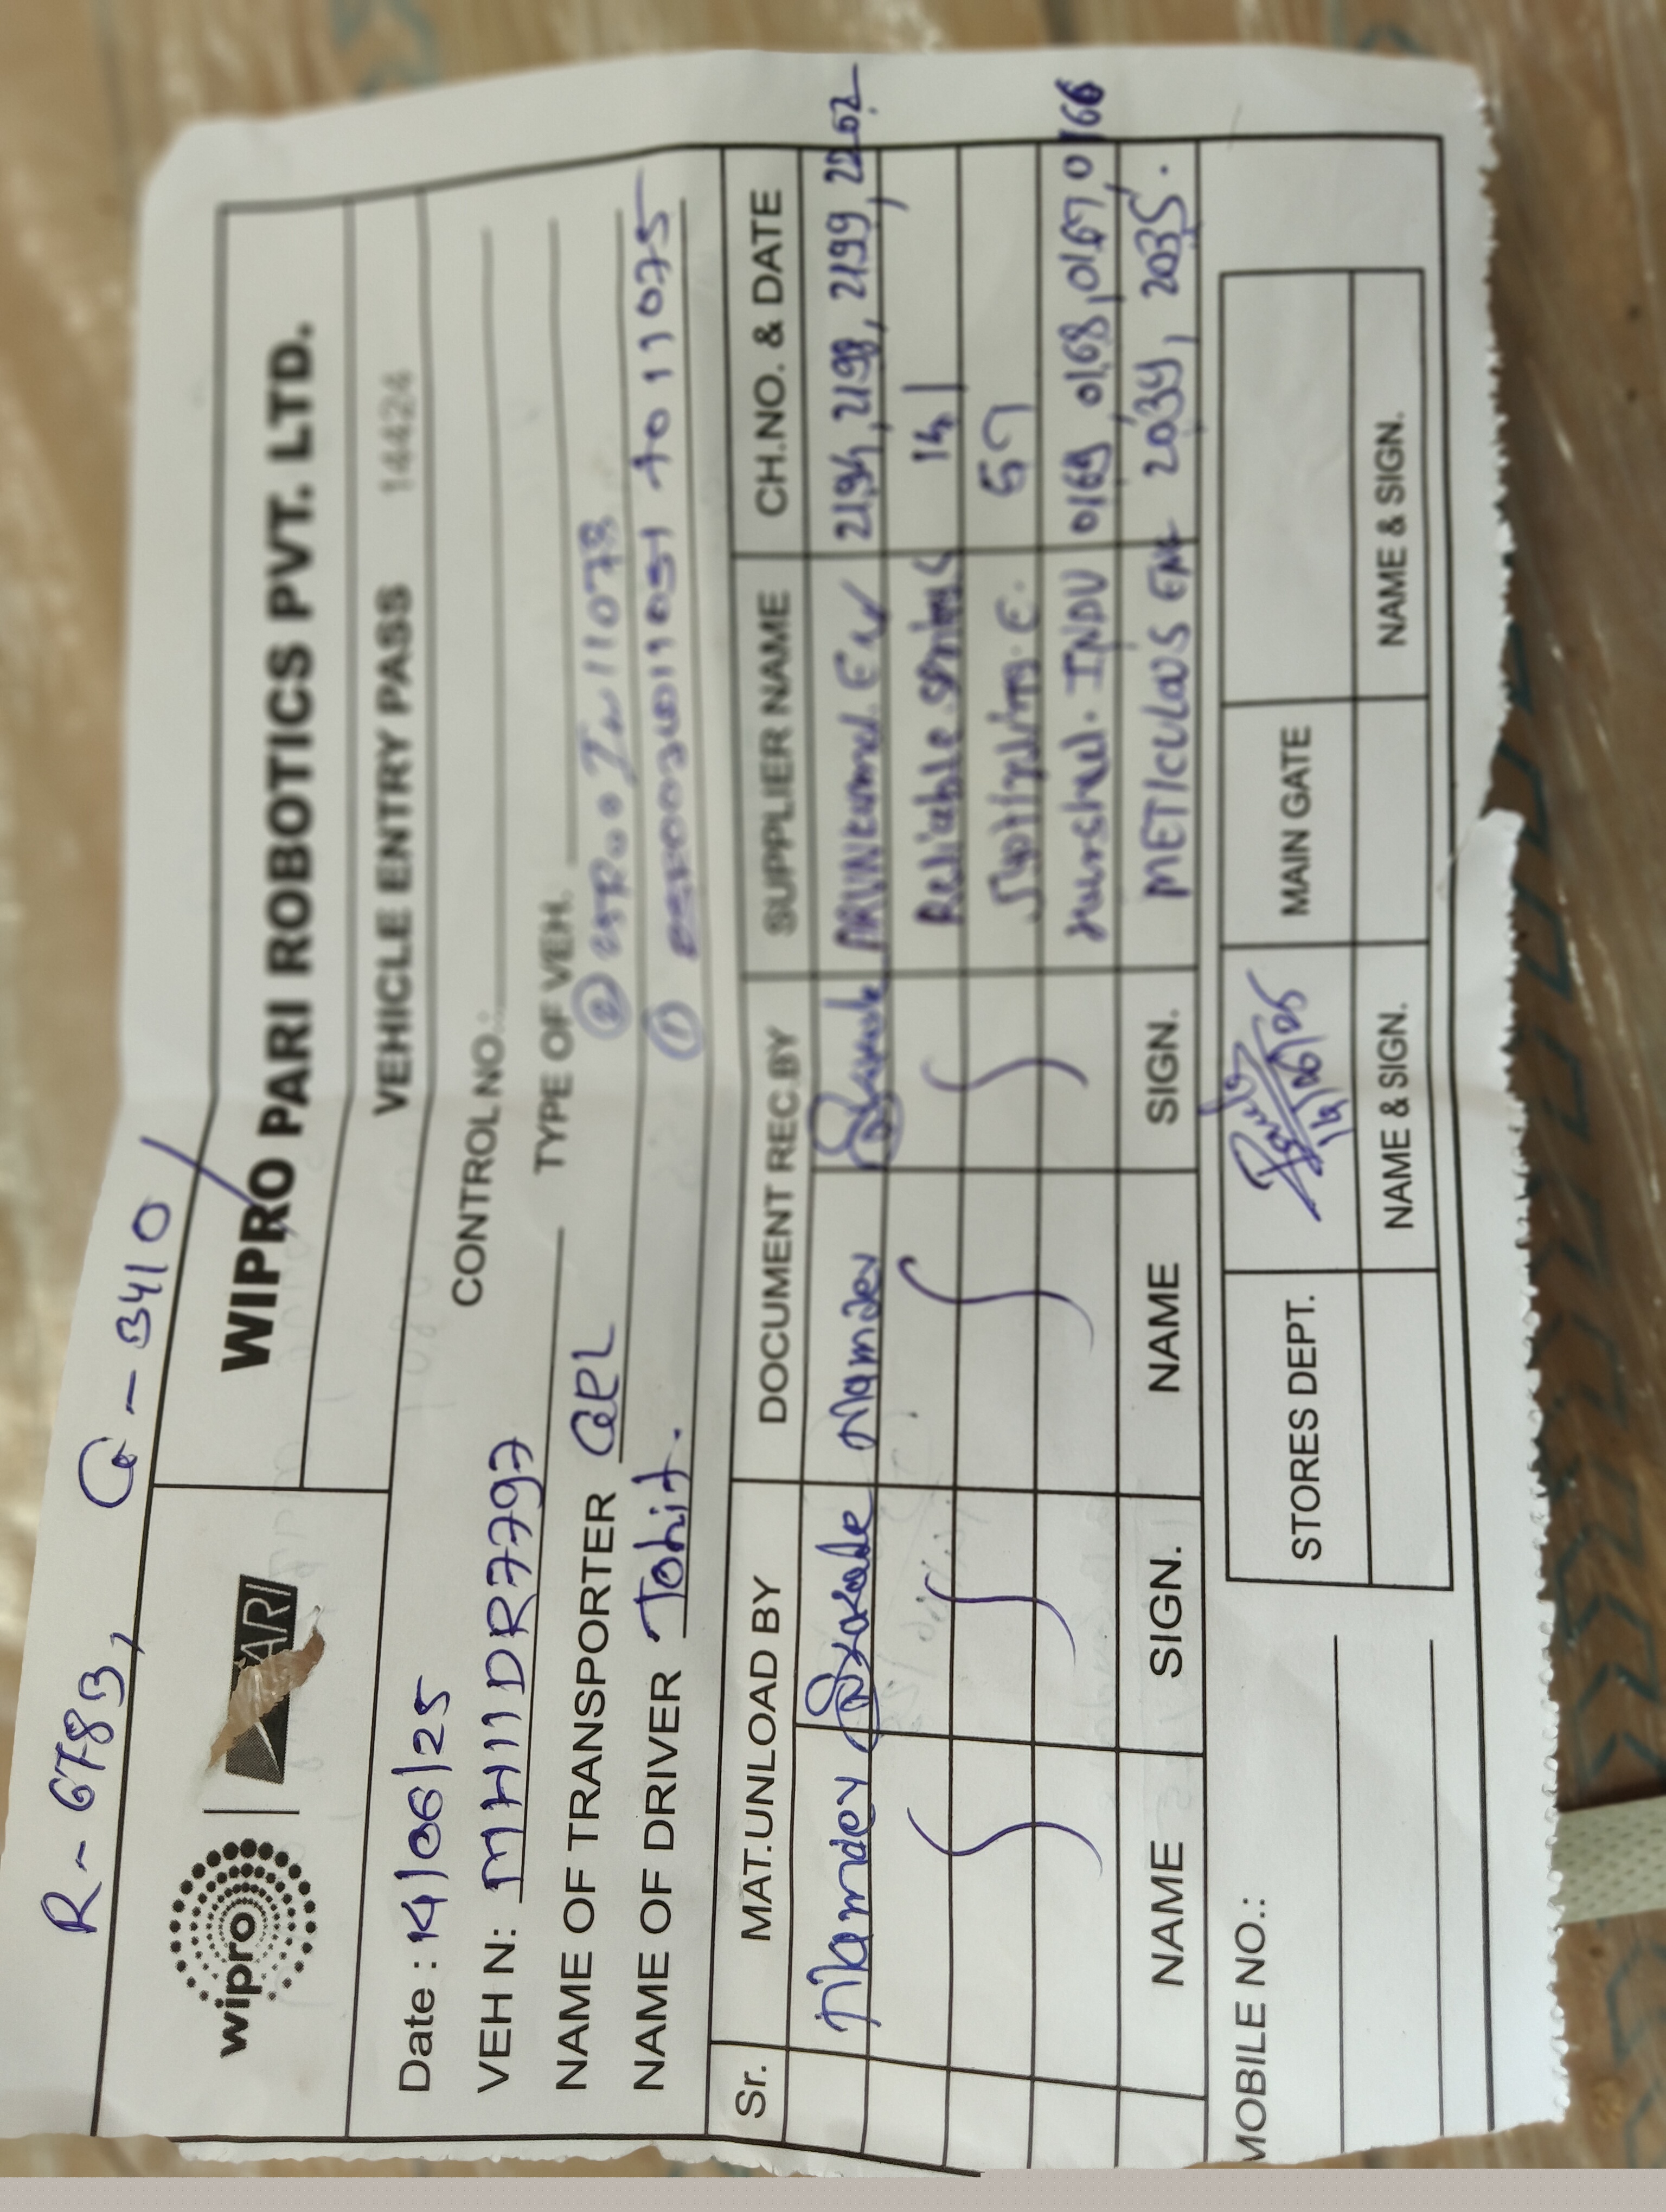 R - 6783, G - 3410
wipro PARI
WIPRO PARI ROBOTICS PVT. LTD.
VEHICLE ENTRY PASS 14424
Date : 14/06/25 CONTROL NO.:
VEH N: MH11DR7797 TYPE OF VEH.
NAME OF TRANSPORTER ②
NAME OF DRIVER ①
Sr. MAT.UNLOAD BY DOCUMENT REC.BY SUPPLIER NAME CH.NO. & DATE
Namdev Namdev 2194, 2198, 2199, 2202
Reliable springs 141
57
INDU 0169, 0168, 0167, 0166
METICULOUS ENG 2034, 2035.
NAME SIGN. NAME SIGN.
MOBILE NO.: STORES DEPT. 14/06/25 MAIN GATE
NAME & SIGN. NAME & SIGN.